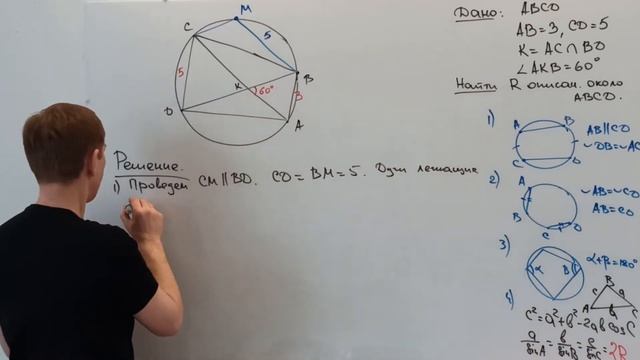 M
C
5
B
5
K
60°
3
D
A
Решение.
1) Проведем CM || BD. CD = BM = 5. Дуги лежащие
Дано: ABCD
AB = 3, CD = 5
K = AC ∩ BD
∠AKB = 60°
Найти R описан. около
ABCD.
1)
A B
C D
AB || CD
◡DB = ◡AC
2)
A
B
C D
◡AB = ◡CD
AB = CD
3)
α β
α + β = 180°
4)
B
c a
A b C
c² = a² + b² - 2ab cos C
a/sin A = b/sin B = c/sin C = 2R